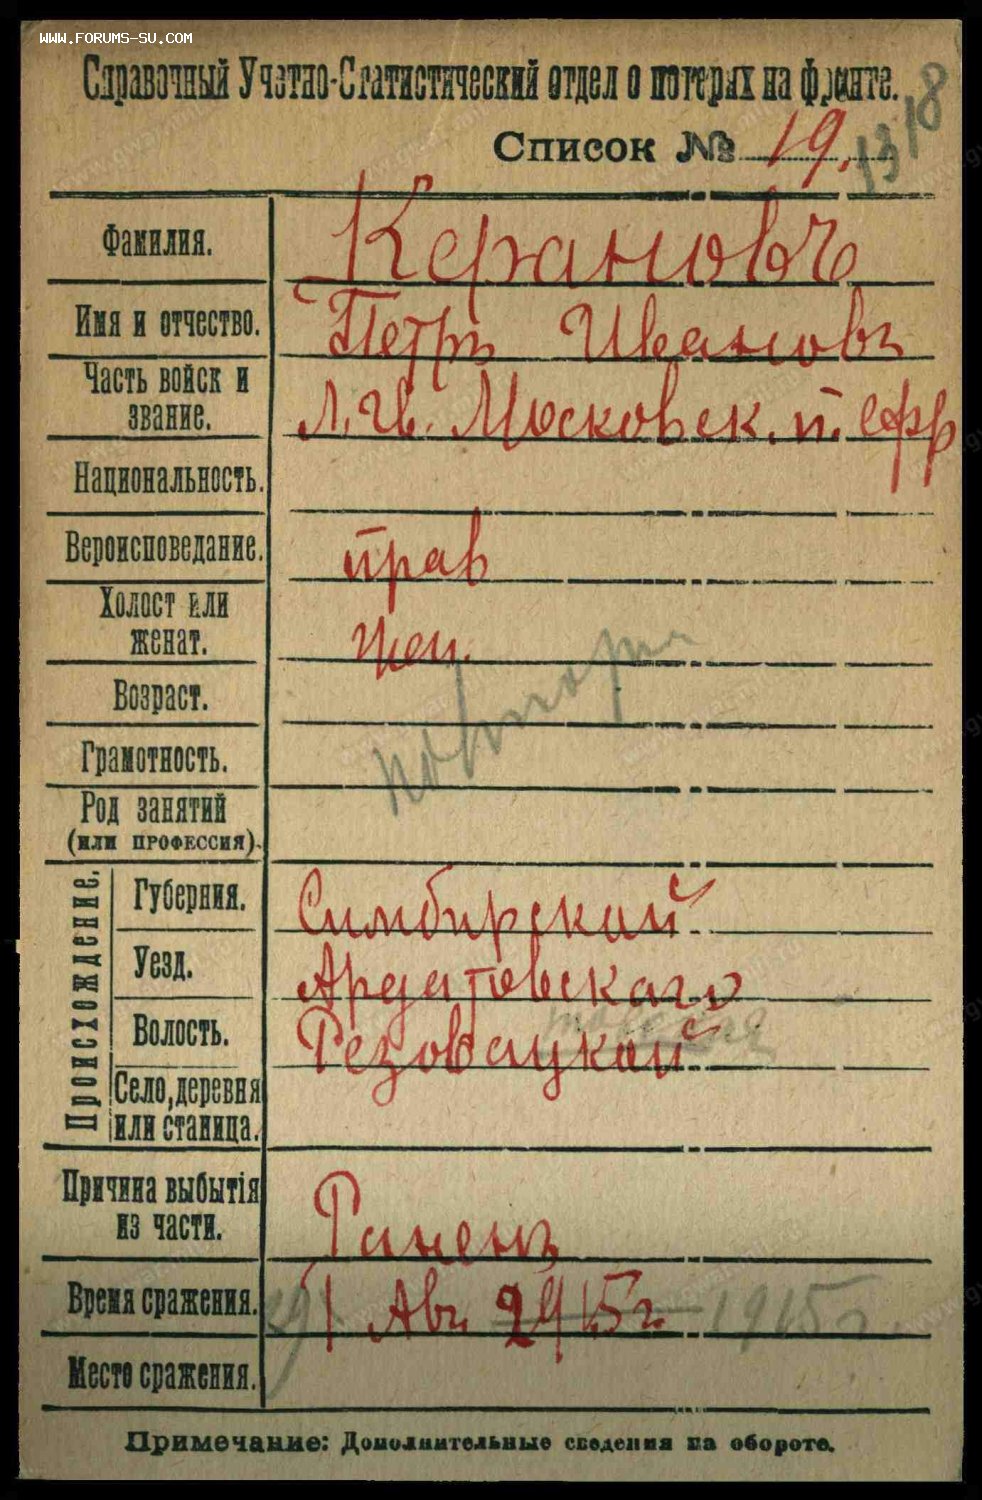 WWW.FORUMS-SU.COM
Справочный Учетно-Статистический отдел о потерях на фронте.
Список № 19. 1318
Фамилия. Керановъ
Имя и отчество. Петръ Ивановъ
Часть войск и звание. Л. Гв. Московск. п. Ефр
Национальность.
Вероисповедание. прав
Холост или женат. жен.
Возраст.
Грамотность.
Род занятий
(или профессия).
Происхождение.
Губерния. Симбирской
Уезд. Ардатовскаго
Волость. Резоватской
Село, деревня или станица.
Причина выбытія из части. Раненъ
Время сражения. 1 Авг 1915 г. 1915 г.
Место сражения.
Примечание: Дополнительные сведения на обороте.